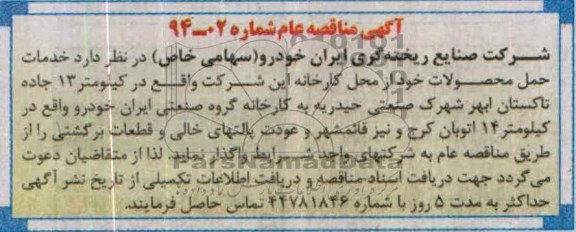 آگهی مناقصه عام شماره ۰۲-۹۴
شرکت صنایع ریخته‌گری ایران خودرو(سهامی خاص) در نظر دارد خدمات
حمل محصولات خود از محل کارخانه این شرکت واقع در کیلومتر۱۳ جاده
تاکستان ابهر شهرک صنعتی حیدریه به کارخانه گروه صنعتی ایران خودرو واقع در
کیلومتر ۱۴ اتوبان کرج و نیز قائمشهر و عودت پالتهای خالی و قطعات برگشتی را از
طریق مناقصه عام به شرکتهای واجد شرایط واگذار نماید. لذا از متقاضیان دعوت
می‌گردد جهت دریافت اسناد مناقصه و دریافت اطلاعات تکمیلی از تاریخ نشر آگهی
حداکثر به مدت ۵ روز با شماره ۴۴۷۸۱۸۴۶ تماس حاصل فرمایند.